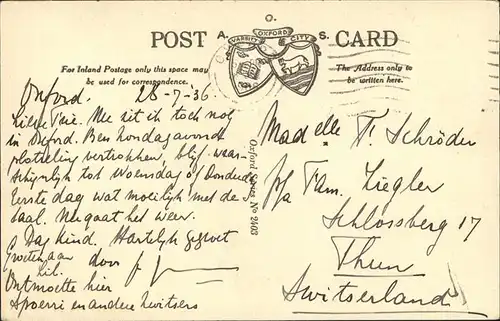 O.
POST A. S. CARD
VARSITY OXFORD CITY
For Inland Postage only this space may
be used for correspondence.
The Address only to
be written here.
Oxford. 28-7-36.
Nu zit ik toch nog
in Oxford. Ben Zondagavond
plotseling vertrokken, blijf waar-
schijnlijk tot Woensdag of Donderd.
Eerste dag wat moeilijk met de
taal. Nu gaat het weer.
Dag kind. Hartelijk gegroet
Groeten aan door
Ontmoette hier
Spoerri en andere Zwitsers
Oxford Series No 2403
Mad elle F. Schröder
p/a Fam. Ziegler
Schlossberg 17
Thun
Switserland